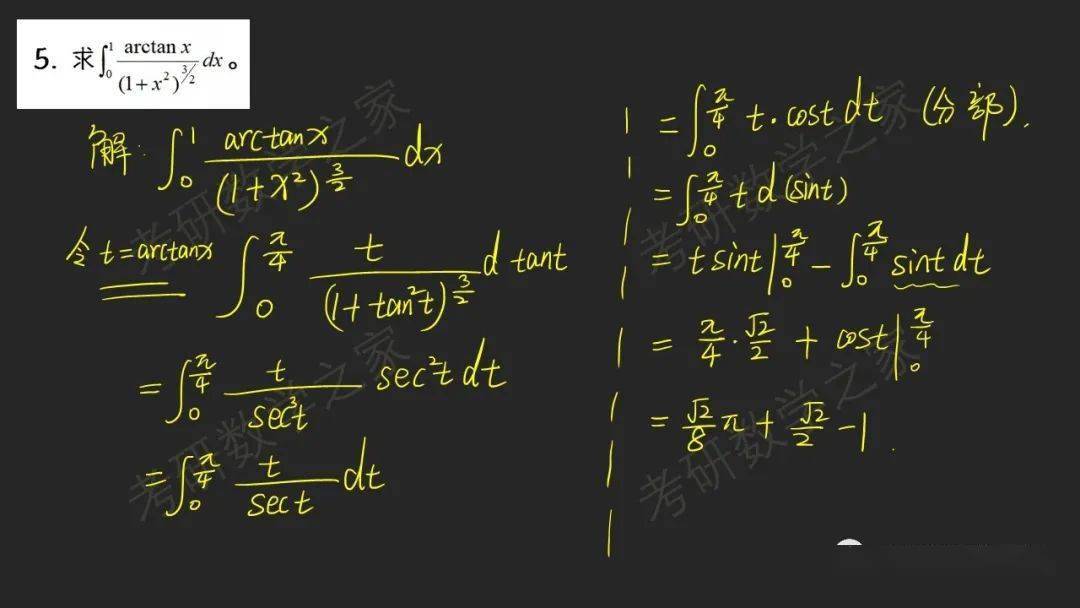 5. 求∫₀¹ arctan x / (1+x²)^(3/2) dx。
解: ∫₀¹ arctanx / (1+x²)^(3/2) dx
令t=arctanx ∫₀^(π/4) t / (1+tan²t)^(3/2) d tant
= ∫₀^(π/4) t / sec³t sec²t dt
= ∫₀^(π/4) t / sect dt
= ∫₀^(π/4) t·cost dt (分部).
= ∫₀^(π/4) t d(sint)
= t sint|₀^(π/4) - ∫₀^(π/4) sint dt
= π/4 · √2/2 + cost|₀^(π/4)
= √2/8 π + √2/2 - 1.
考研数学之家
考研数学之家
考研数学之家
考研数学之家